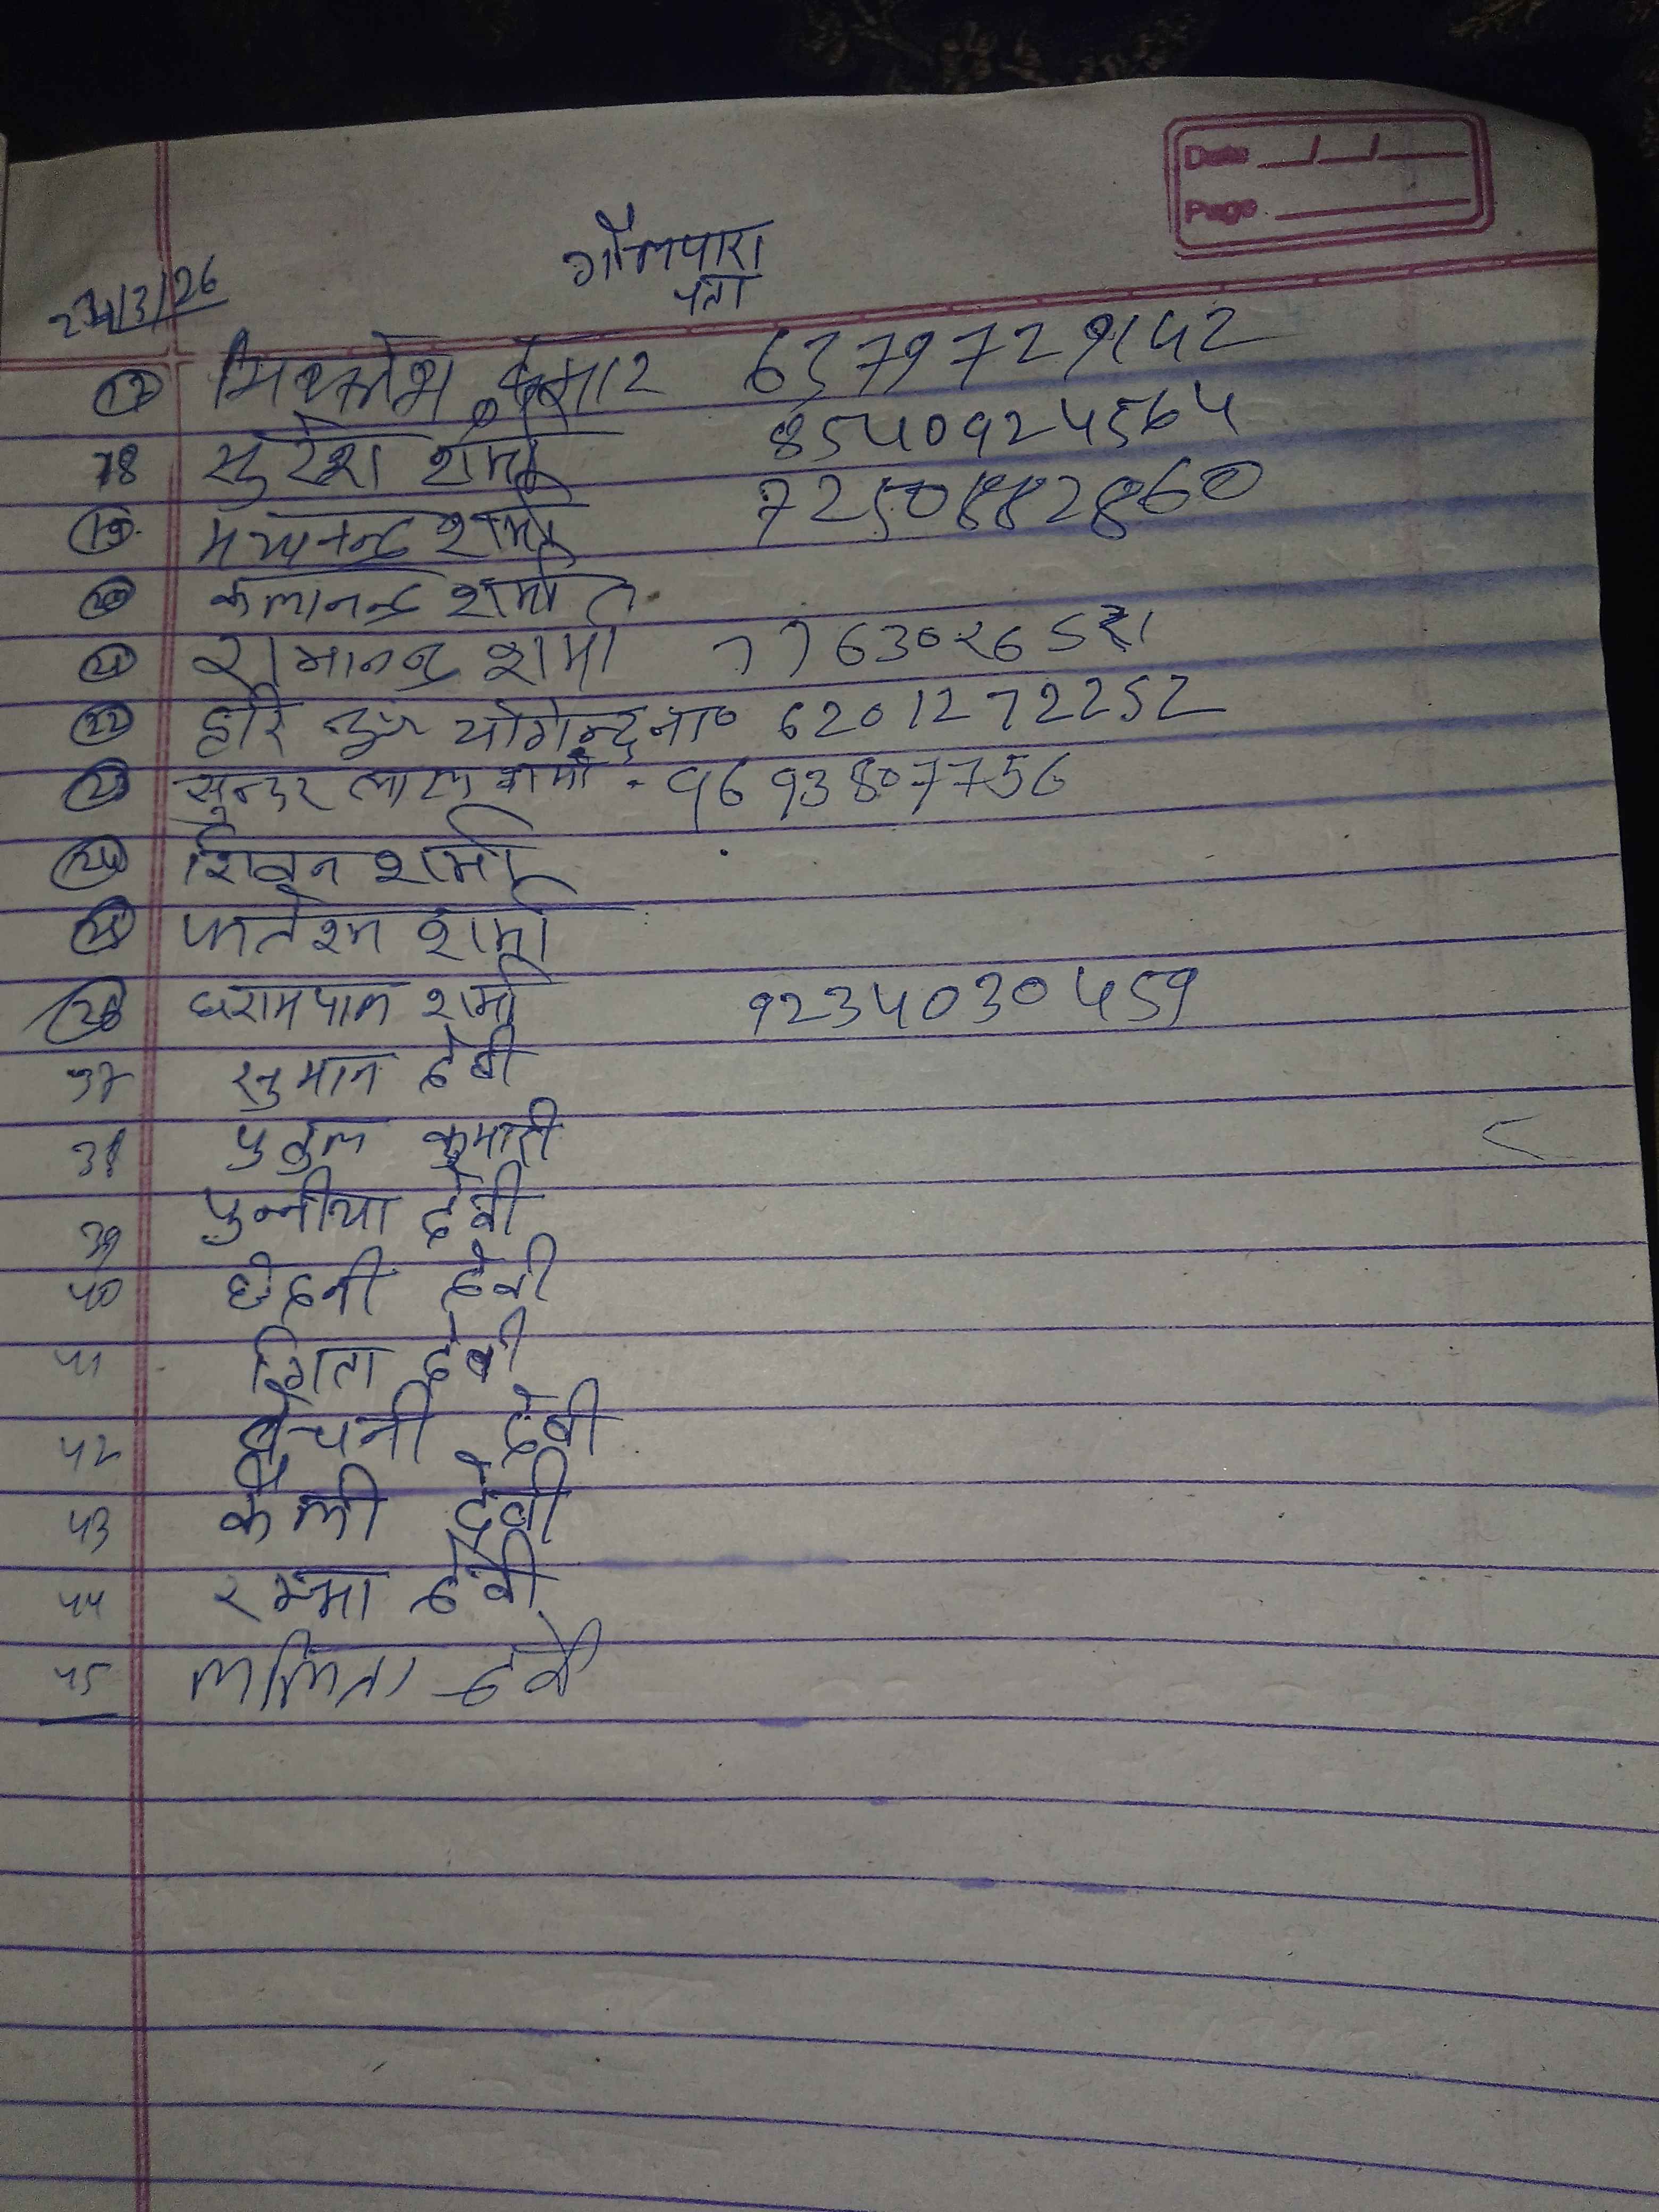 Date __/__/____
Page
गौलपारा
पता
24/3/26
17 मिथलेश कुमार
18 सुरेश शर्मा 8540924564
19 शर्मा 7250882860
20 कलानन्द शर्मा
21 रामानन्द शर्मा
22 हरि योगेन्द्र ना० 6201272252
23 सुन्दर लाल शर्मा - 9693807756
24 शिवन शर्मा
25 शर्मा
26 धरामपाल शर्मा 9234030459
37 सुमान देवी
38 पुतुल कुमारी
39 पुन्नीया देवी
40 छेदनी देवी
41 गिता देवी
42 देवी
43 कैली देवी
44 रम्भा देवी
45 ललिता देवी